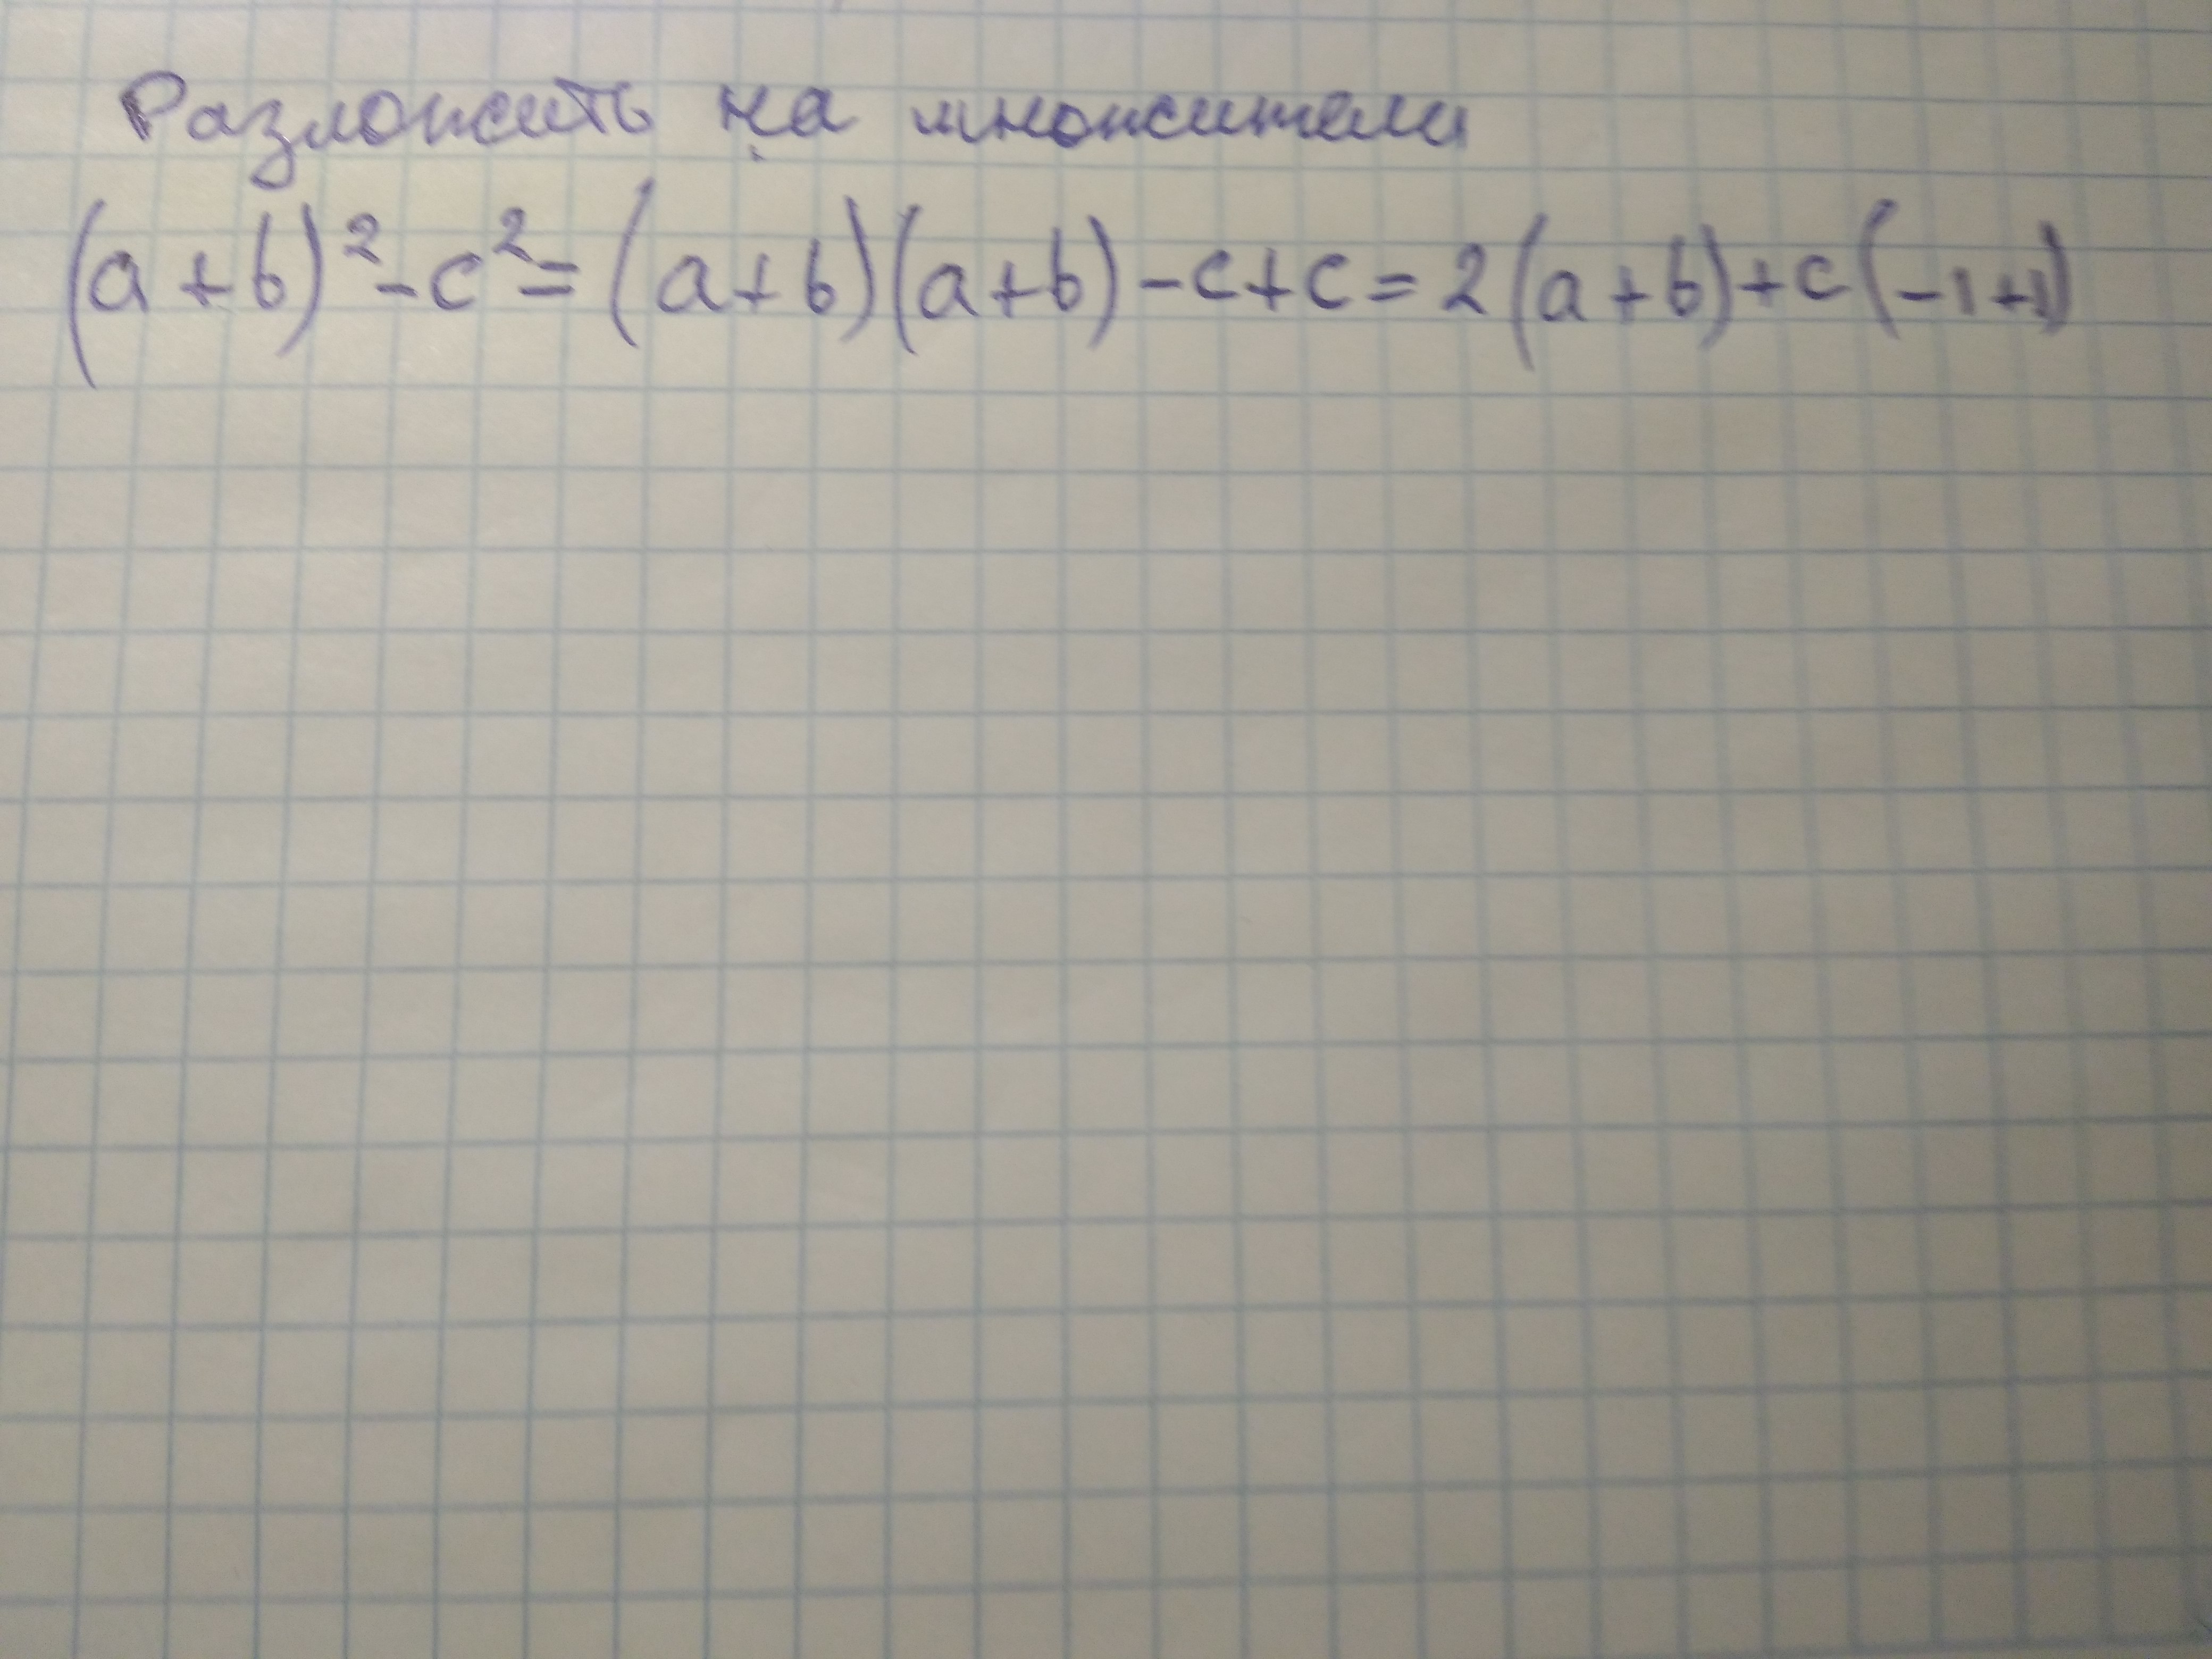 Разложить на множители
(a+b)²-c²=(a+b)(a+b)-c+c=2(a+b)+c(-1+1)